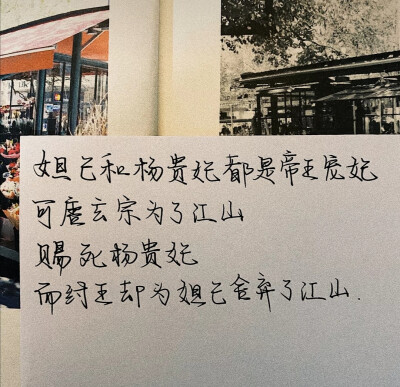 妲己和杨贵妃都是帝王宠妃
可唐玄宗为了江山
赐死杨贵妃
而纣王却为妲己舍弃了江山.